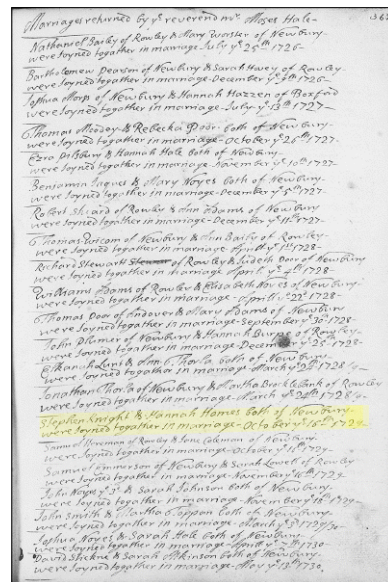 Marriages returned by yᵉ reverend mʳ Moses Hale
362
Nathaniel Barley of Rowley & Mary Worster of Newbury
were Joyned together in marriage July yᵉ 25ᵗʰ 1726
Bartholemew Pearson of Newbury & Sarah of Rowley
were Joyned together in marriage December yᵉ 1726
Joshua Morss of Newbury & Hannah Hazzen of Boxford
were Joyned together in marriage July yᵉ 13ᵗʰ 1727
Thomas Moodey & Rebecka Poor both of Newbury
were Joyned together in marriage October yᵉ 26ᵗʰ 1727
Ezra Pilsbury & Hannah Hale both of Newbury
were Joyned together in marriage November yᵉ 10ᵗʰ 1727
Benjamin Jaques & Mary Noyes both of Newbury
were Joyned together in marriage December yᵉ 5ᵗʰ 1727
Robert of Rowley & Ann Adams of Newbury
were Joyned together in marriage December yᵉ 11ᵗʰ 1727
Thomas of Newbury & Ann Barley of Rowley
were Joyned together in marriage April yᵉ 1ˢᵗ 1728
Richard Stewart of Rowley & Judeth Poor of Newbury
were Joyned together in marriage April yᵉ 4ᵗʰ 1728
William Adams of Rowley & Elisabeth Noyes of Newbury
were Joyned together in marriage April yᵉ 22ᵗʰ 1728
Thomas Poor of Andover & Mary Adams of Newbury
were Joyned together in marriage September yᵉ 30ᵗʰ 1728
John Plumer of Newbury & Hannah of Rowley
were Joyned together in marriage December 25ᵗʰ 1728
Elkanah Lunt & Ann Thorla both of Newbury
were Joyned together in marriage March yᵉ
Jonathan Thorla of Newbury & Martha Brocklebank of Rowley
were Joyned together in marriage March yᵉ 24ᵗʰ
Stephen Knight & Hannah Homes both of Newbury
were Joyned together in marriage October yᵉ 16ᵗʰ 1729
Samuel of Rowley & Jane Coleman of Newbury
were Joyned together in marriage October yᵉ 1729
Samuel Emmerson of Newbury & Sarah of Rowley
were Joyned together in marriage November yᵉ 1729
John Noyes yᵉ 3ᵈ & Sarah Johnson both of Newbury
were Joyned together in marriage November yᵉ 1729
John Smith & Martha Toppan both of Newbury
were Joyned together in marriage March yᵉ 3ᵈ 1729/30
Joshua Noyes & Sarah Hale both of Newbury
were Joyned together in marriage April yᵉ 1730
David & Sarah Atkinson both of Newbury
were Joyned together in marriage May yᵉ 13ᵗʰ 1730